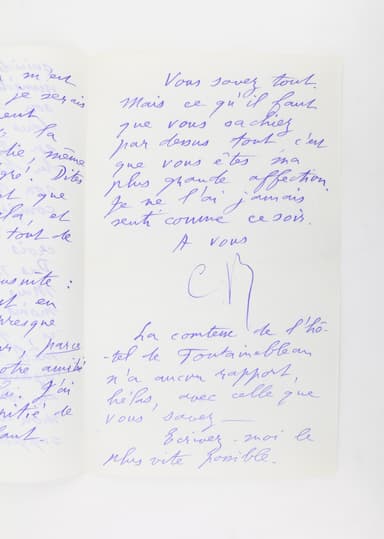 m'est
je serais
la
même
Dites
que
et
tout de
:
en
presque
parce
amitié
J'ai
de
Vous savez tout.
Mais ce qu'il faut
que vous sachiez
par dessus tout c'est
que vous êtes ma
plus grande affection.
Je ne l'ai jamais
senti comme ce soir.
A vous
CB
La comtesse de l'hô-
tel de Fontainebleau
n'a aucun rapport,
hélas, avec celle que
vous savez —
Ecrivez-moi le
plus vite possible.